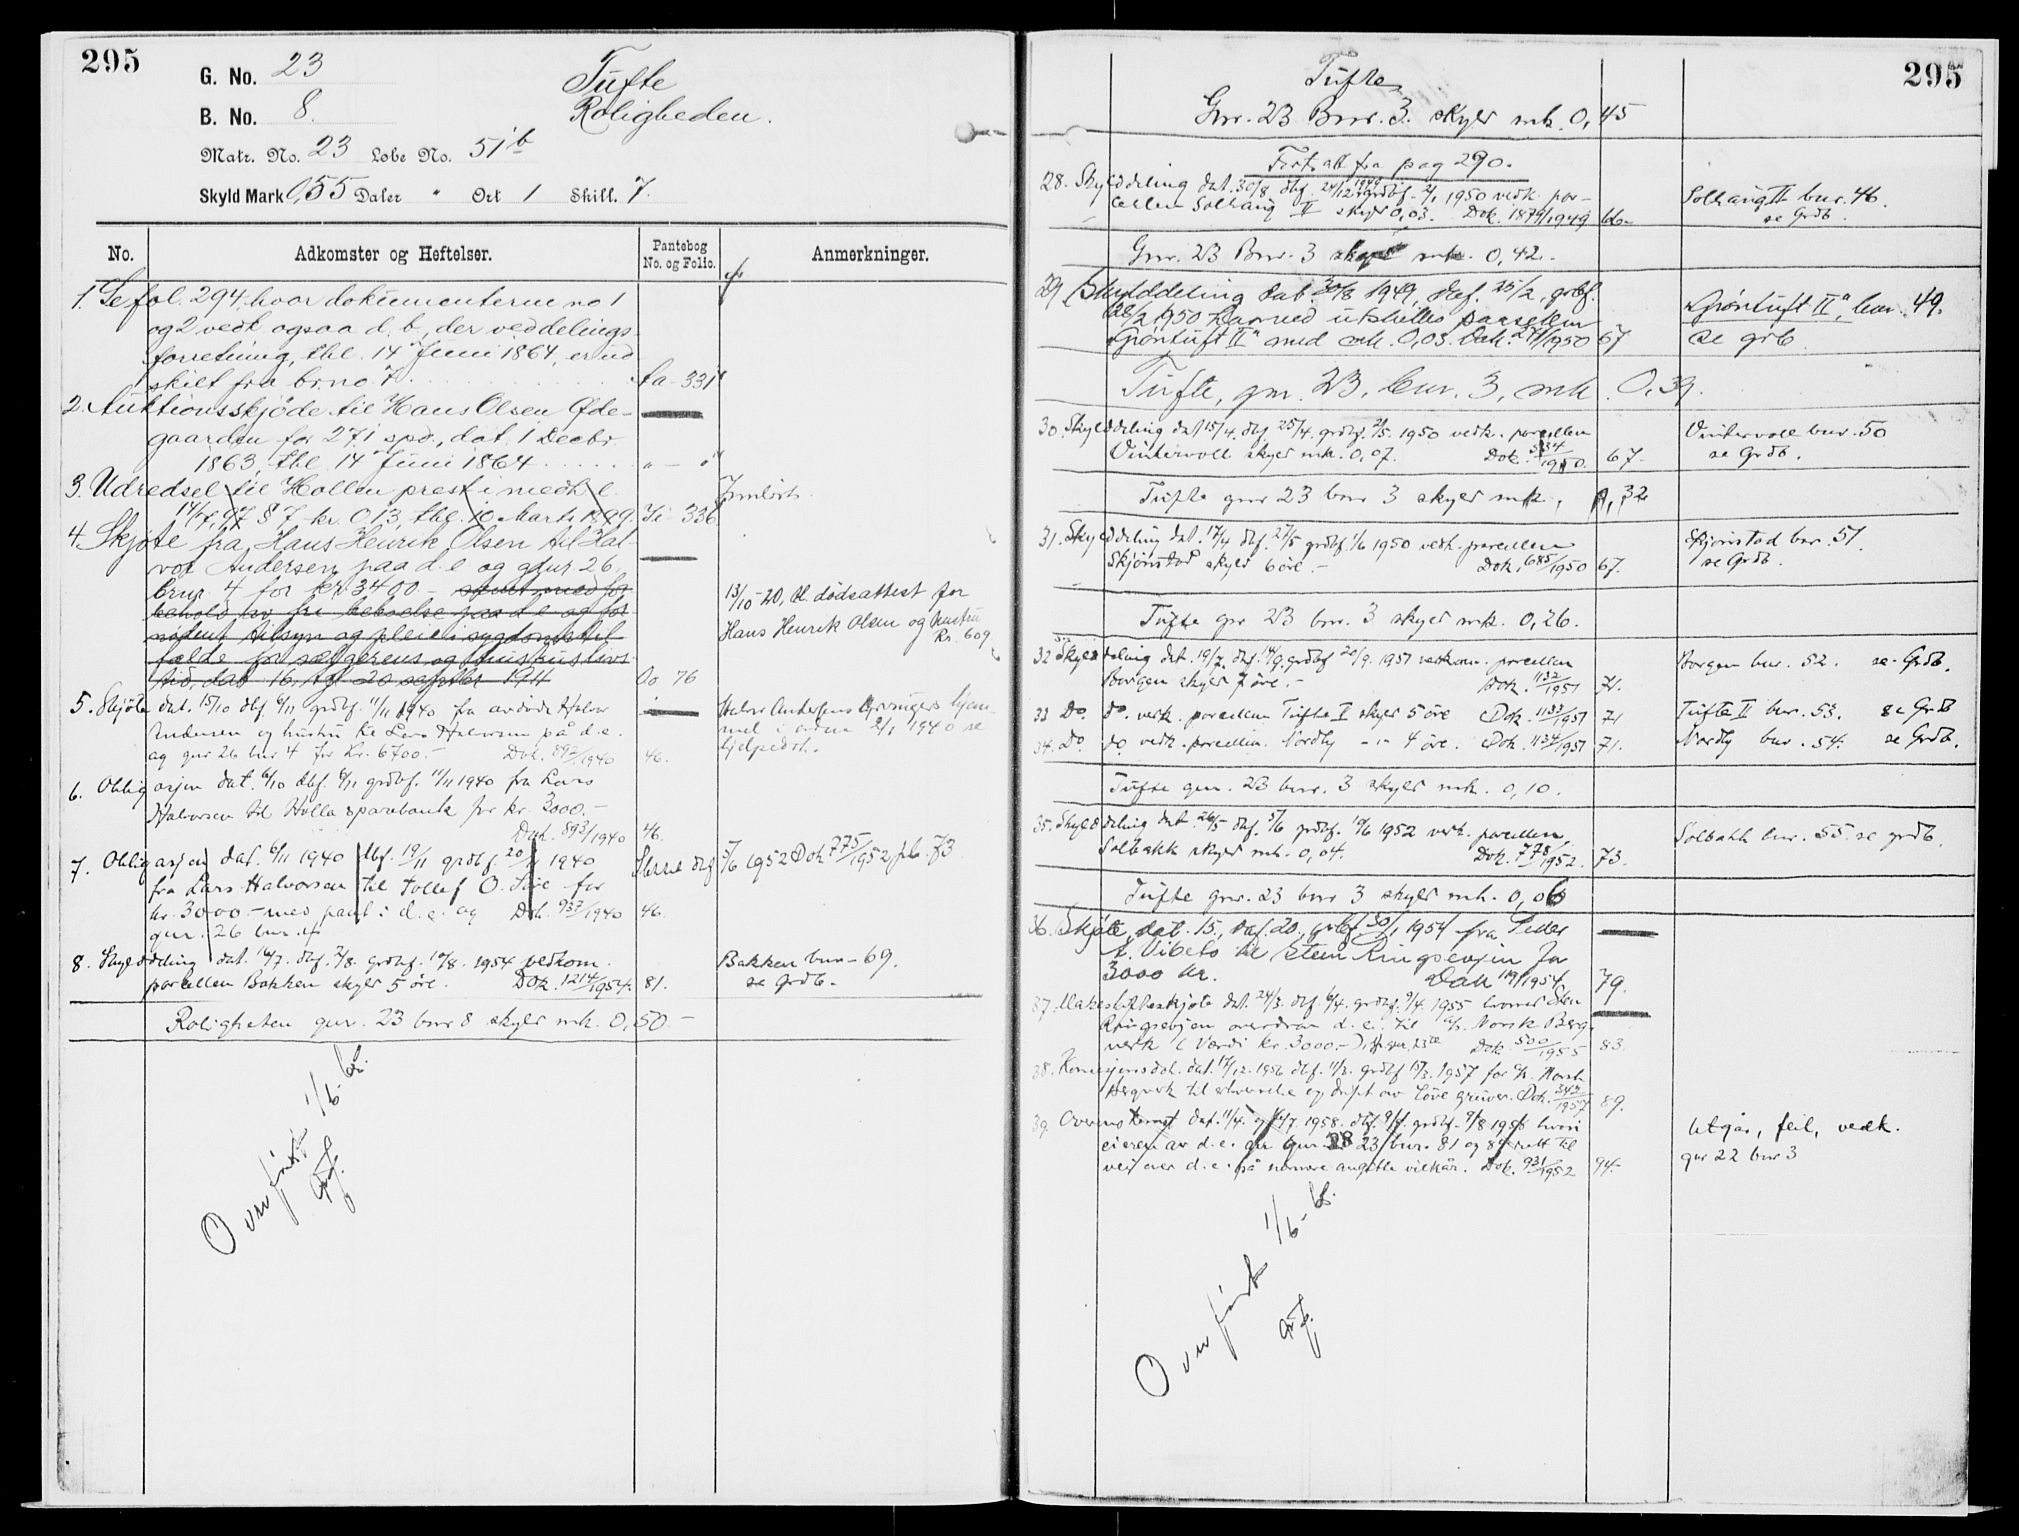 295
G. No. 23
B. No. 8.
Matr. No. 23 Løbe No. 51 b
Skyld Mark 0,55 Daler " Ort 1 Skill. 7.
Tufte
Roligheden.
No. Adkomster og Heftelser. Pantebog No. og Folio. Anmerkninger.
1. Se fol. 294, hvor dokumenterne no 1
og 2 vedk. ogsaa d. b., der ved delings-
forretning, thl. 14 Juni 1864, er ud
skilt fra br.no. 7. Aa 331
2. Auktionsskjøde til Hans Olsen Øde-
gaarden for 271 spd., dat. 1 Decbr
1863, thl. 14 Juni 1864 " — "
3. Udredsel til Hollen prest i medh. l.
14/7 97 § 7 kr. 0,13, thl. 10 Marts 1899. Ji 336
4. Skjøte fra Hans Henrik Olsen til Hal-
vor Andersen paa d. e og gnr 26,
brnr. 4 for kr 3400. - samt med for
behold av fri beboelse paa d. e og for
nødent tilsyn og pleie i sygdomstil
fælde for sælgerens og hustrus livs
tid, dat 16, tgl 20 septbr 1911 Oo 76
13/10-20, tl. dødsattest for
Hans Henrik Olsen og hustru
Kr. 609
5. Skjøte dat. 15/10 dbf. 6/11 grdbf. 11/11 1940 fra avdøde Halvor
Andersen og hustru til Lars Halvorsen på d. e.
og gnr 26 bnr 4 for kr. 6700.- Dok. 892/1940 46.
Halvor Andersens
i orden 2/1 1940 se
hjelpedok.
6. Obligasjon dat. 6/10 dbf. 6/11 grdbf. 11/11 1940 fra Lars
Halvorsen til Holla sparebank for kr. 3000.-
Dok. 893/1940 46.
7. Obligasjon dat. 6/11 1940 dbf. 19/11 grdbf. 20/11 1940
fra Lars Halvorsen til Tollef O. for
kr. 3000.- med pant i d. e. og Dok. 937/1940 46.
gnr. 26 bnr. 4
Slettet dbf 5/6 1952 Dok 775/1952 pb. 73
8. Skylddeling dat. 16/7. dbf. 7/8. grdbf. 10/8. 1954 vedkom.
parcellen Bakken skyld 5 øre. Dok. 1214/1954. 81.
Bakken bnr. 69.
se Grdb.
Roligheten gnr. 23 bnr 8 skyld mk. 0,50 -
Overført 1/6-
295
Tufte
Gnr. 23 Bnr. 3. skyld mk. 0,45
Forts. alt fra pag 290.
28. Skylddeling dat. 30/8 dbf. 24/12 1949 grdbf. 2/1 1950 vedk. par-
cellen Solhaug II skyld 0,03. Dok. 1879/1949 66
Solhaug II bnr. 46.
se Grdb.
Gnr. 23 Bnr. 3 skyld mk. 0,42.
29. Skylddeling dat. 30/8 1949, dbf. 25/2, grbf.
28/2 1950 Hvorved utskilles parsellen
Grøntuft II a med mk. 0,03. Dok. 274/1950 67
Grøntuft II a, bnr. 49.
se grb
Tufte, gnr. 23, bnr. 3, mk. 0,39.
30. Skylddeling dat 15/4. dbf 25/4. grdbf. 2/5. 1950 vedk. parcellen
Vintervoll skyld mk. 0,07. Dok. 534/1950. 67.
Vintervoll bnr. 50
se Grdb.
Tufte gnr 23 bnr 3 skyld mk, 0,32
31. Skylddeling dat. 17/4 dbf. 27/5 grdbf. 1/6 1950 vedk. parcellen
Skjønstad skyld 6 øre.- Dok. 685/1950 67.
Skjønstad bnr. 51.
se Grdb.
Tufte gnr 23 bnr. 3 skyld mk. 0,26.
32. Skylddeling dat. 19/7. dbf. 14/9. grdbf 20/9. 1951 vedkom. parcellen
Borgen skyld 7 øre.- Dok. 1132/1951 71.
Borgen bnr. 52. se Grdb.
33 Do. do. vedk. parcellen Tufte II skyld 5 øre Dok. 1133/1951 71
Tufte II bnr. 53. se Grdb
34. Do. do vedk. parcellen Nordly - " - 4 øre. Dok. 1134/1951 71.
Nordly bnr. 54. se Grdb.
Tufte gnr. 23 bnr. 3 skyld mk. 0,10.
35. Skylddeling dat. 26/5 dbf. 5/6 grdbf. 10/6 1952 vedk. parcellen
Solbakk skyld mk. 0,04. Dok. 778/1952. 73.
Solbakk bnr. 55. se grdb.
Tufte gnr. 23 bnr 3 skyld mk. 0,06
36. Skjøte, dat. 15., dbf. 20., grbf. 30/1 1954 fra Peder
A. Vibeto til Stein Ringsevjen for
3000 kr. Dok 119/1954. 79.
37. Makeskifteskjøte dat. 24/3. dbf 6/4. grdbf. 9/4. 1955 hvorved Sten
Ringsevjen overdrar d. e. til A/S Norsk Berg-
verk i verdi kr. 3000.- Dok 500/1955 83.
38. Konsesjonsdok. dat. 17/12. 1956 dbf. 11/3. grdbf 15/3. 1957 for A/S. Norsk
Bergverk til ervervelse og drift av Søve gruver. Dok. 343/1957 89.
39. Overenskomst dat. 11/4. og 14/7. 1958. dbf. 9/8. grdbf. 9/8 1958 hvori
eieren av d. e. gir gnr 23 bnr. 81 og rett til
vei over d. e. på nærmere angitte vilkår. Dok. 931/1952 94.
Utgår, feil, vedk.
gnr 22 bnr 3
Overført 1/6-